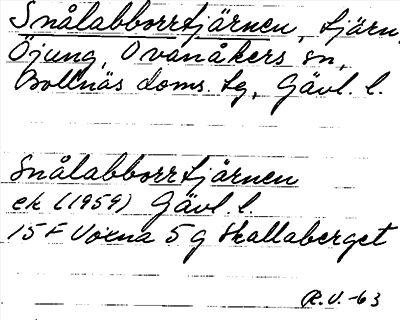 Snålabborrtjärnen, tjärn,
Öjung, Ovanåkers sn,
Bollnäs doms. tg, Gävl. l.
Snålabborrtjärnen
ek (1959) Gävl. l.
15 F Voxna 5 g Skallaberget
R.V.-63